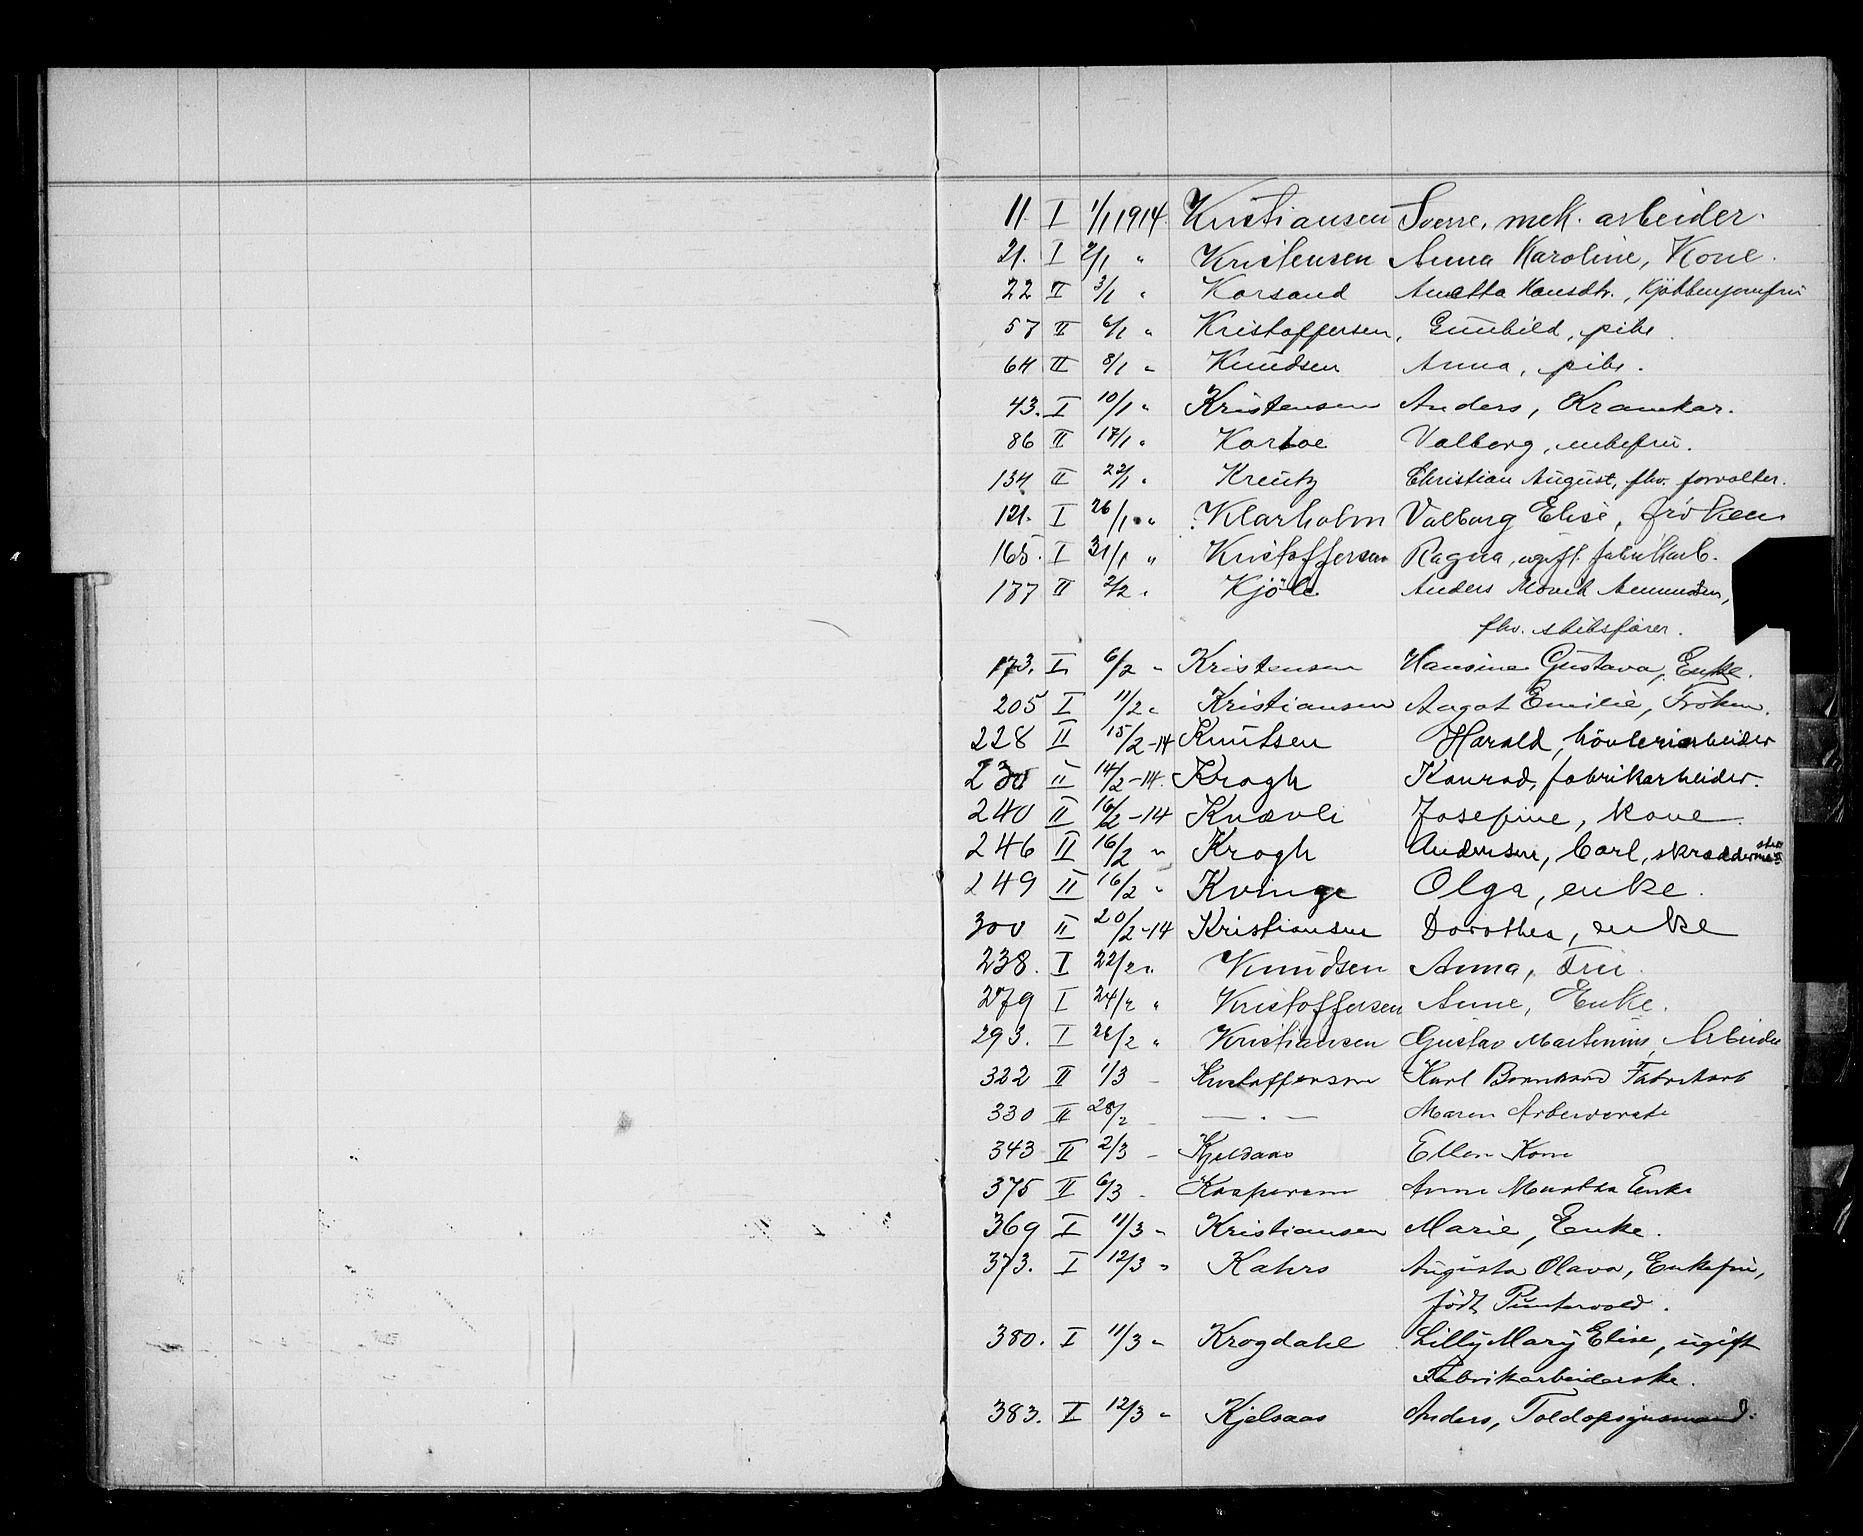 11. I 1/1 1914. Kristiansen Sverre, mek. arbeider.
21. I 2/1 " Kristensen Anna Karoline, Kone.
22 II 3/1 " Korsand Anetta Hansdtr., Kjökkenjomfru
57 II 6/1 " Kristoffersen, Gunhild, pike.
64 II 8/1 " Knudsen Anna, pike.
43. I 10/1 " Kristensen Anders, Kramkar.
86 II 17/1 " Valborg, enkefru.
134 II 22/1 " Kreutz Christian August, fhv. forvalter.
121. I 26/1 " Klarholm Valborg Elise, fröken
165. I 31/1 " Kristoffersen Ragna, ugift. fabrikarb.
187 II 2/2 " Anders Amundsen,
fhv. skibsfører.
173. I 6/2 " Kristensen Hansine Gustava, Enke.
205 I 11/2 " Kristiansen Aagot Emilie, Fröken.
228 II 15/2-14 Knutsen Harald, hövleriarbeider
230 II 14/2-14. Krogh Konrad, fabrikarbeider.
240 II 16/2-14 Knævli Josefine, kone.
246 II 16/2 " Krogh Andersen, Carl, skræddermester
249 II 16/2 " Kvinge Olga, enke.
300 II 20/2-14 Kristiansen Dorothea, enke
238. I 22/2 " Knudsen Anna, Fru.
279 I 24/2 " Kristoffersen Anne, Enke.
293. I 26/2 " Kristiansen Gustav Martinius, Arbeider
322 II 1/3 - Kristoffersen Karl Bernhard Fabrikarb
330 II 28/2 - — " — Maren Arbeiderske
343 II 2/3 - Kjelsaas Ellen Kone
375 II 6/3 - Kaspersen Anne Martha Enke
369 I 11/3 " Kristiansen Marie, Enke.
373. I 12/3 " Kahrs Augusta Olava, Enkefru,
födt Puntervold.
380. I 11/3 " Krogdahl Lilly Mary Elise, ugift
Fabrikarbeiderske.
383. I 12/3 " Kjelsaas Anders, Toldopsynsmand.